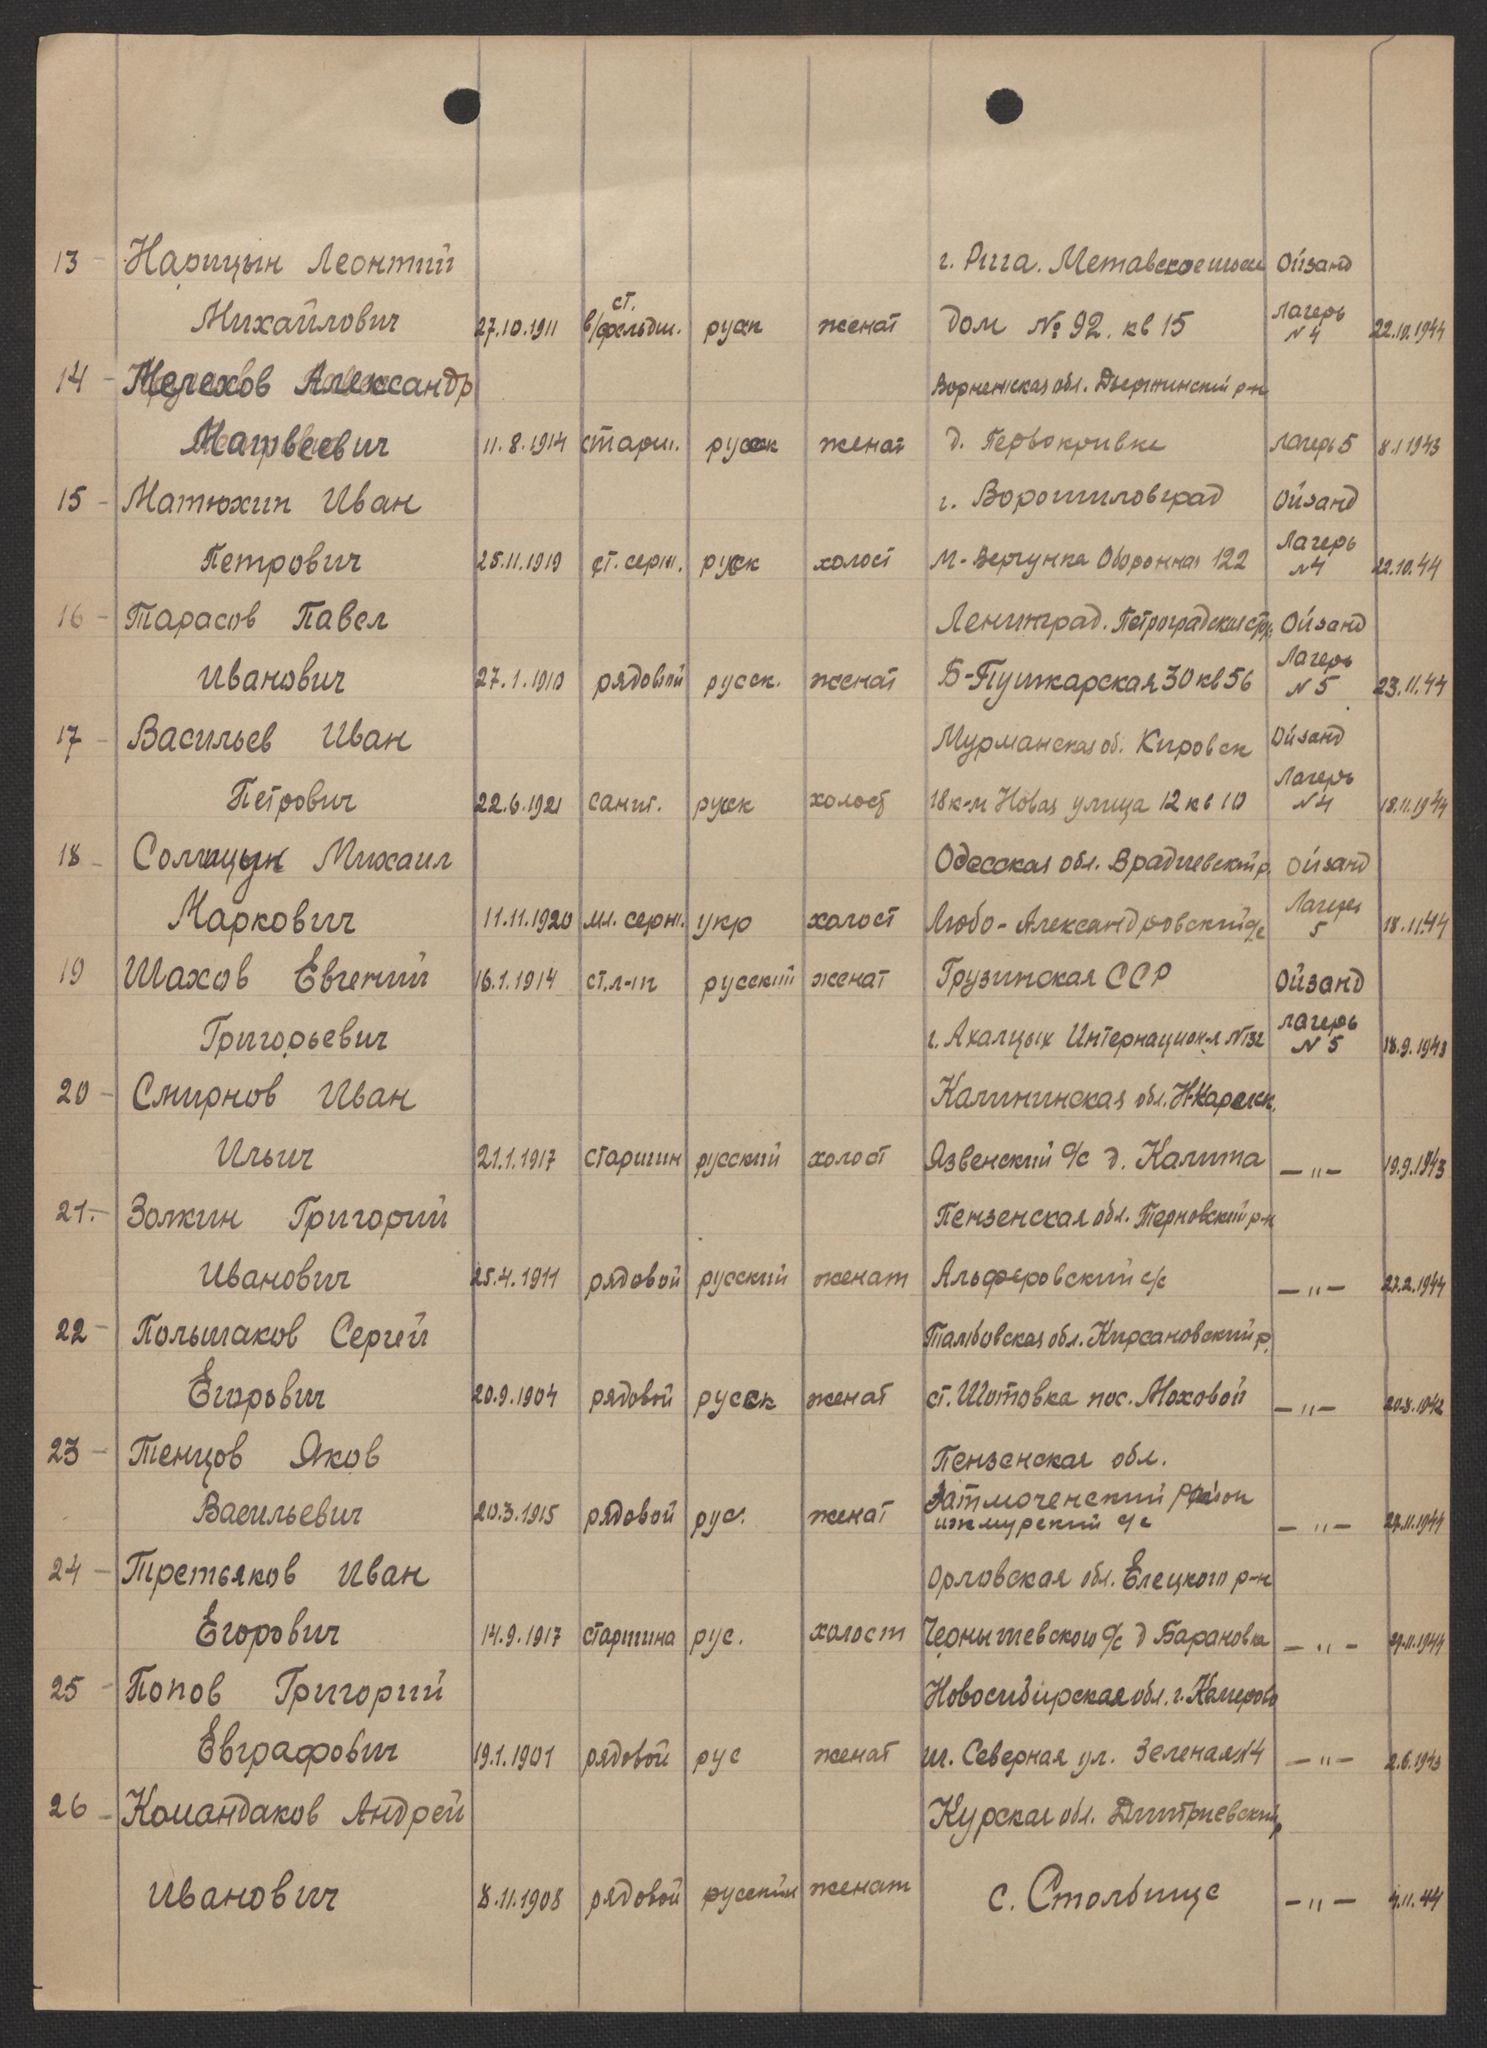 13 - Нарицын Леонтий г. Рига. Метавское шоссе Ойзанд
Михайлович 27.10.1911 ст. в/фельдш. русск женат дом № 92. кв 15 Лагерь N 4 22.10.1944
14 - Мелехов Александр Ворнежская обл. Дзержинский р-н
Матвеевич 11.8.1914 старш. русск женат д. Первокривке Лагерь 5 8.1 1943
15 - Матюхин Иван г. Ворошиловград Ойзанд
Петрович 25.11.1919 ст. серж. русск холост М-Вергунка Оборонная 122 Лагерь N4 22.10.44
16 - Тарасов Павел Ленинград. Петроградская стор. Ойзанд
Иванович 27.1.1910 рядовой русск. женат Б-Пушкарская 30 кв 56 Лагерь N 5 23.11.44
17 - Васильев Иван Мурманская об. Кировск Ойзанд
Петрович 22.6.1921 санит. русск холост 18 к-м Новая улица 12 кв 10 Лагерь N4 18.11.1944
18 - Михаил Одесская обл. Врадиевский р. Ойзанд
Маркович 11.11.1920 мл. серж. укр холост Любо-Александровский с/с Лагерь 5 18.11.44
19 Шахов Евгений 16.1.1914 ст.л-нт русский женат Грузинская ССР Ойзанд
Григорьевич г. Ахалцых Интернационал N132 Лагерь N 5 18.9.1943
20 - Смирнов Иван Калининская обл. Н-Карельск.
Ильич 21.1.1917 старшин русский холост Язвенский с/с д. Калита — " — 19.9.1943
21. - Золкин Григорий Пензенская обл. Терновский р-н
Иванович 25.4.1911 рядовой русский женат Альферовский с/с — " — 27.2.1944
22 - Польшаков Сергей Тамбовская обл. Кирсановский р.
Егорович 20.9.1904 рядовой русск женат ст. Шотовка пос. Моховой — " — 20.8.1942
23 - Тенцов Яков Пензенская обл.
Васильевич 20.3.1915 рядовой рус. женат Батмоченский район
ижмурский с/с — " — 27.11.1944
24 - Третьяков Иван Орловская обл. Елецкого р-н
Егорович 14.9.1917 старшина рус. холост Чернышевского с/с д Барановка — " — 27.11.1944
25 - Попов Григорий Новосибирская обл. г. Кемерово
Евграфович 19.1.1901 рядовой рус женат ш. Северная ул. Зеленая 14 — " — 2.6.1943
26 - Командаков Андрей Курская обл. Дмитриевский р
Иванович 8.11.1908 рядовой русский женат с. Столбище — " — 4.11.44